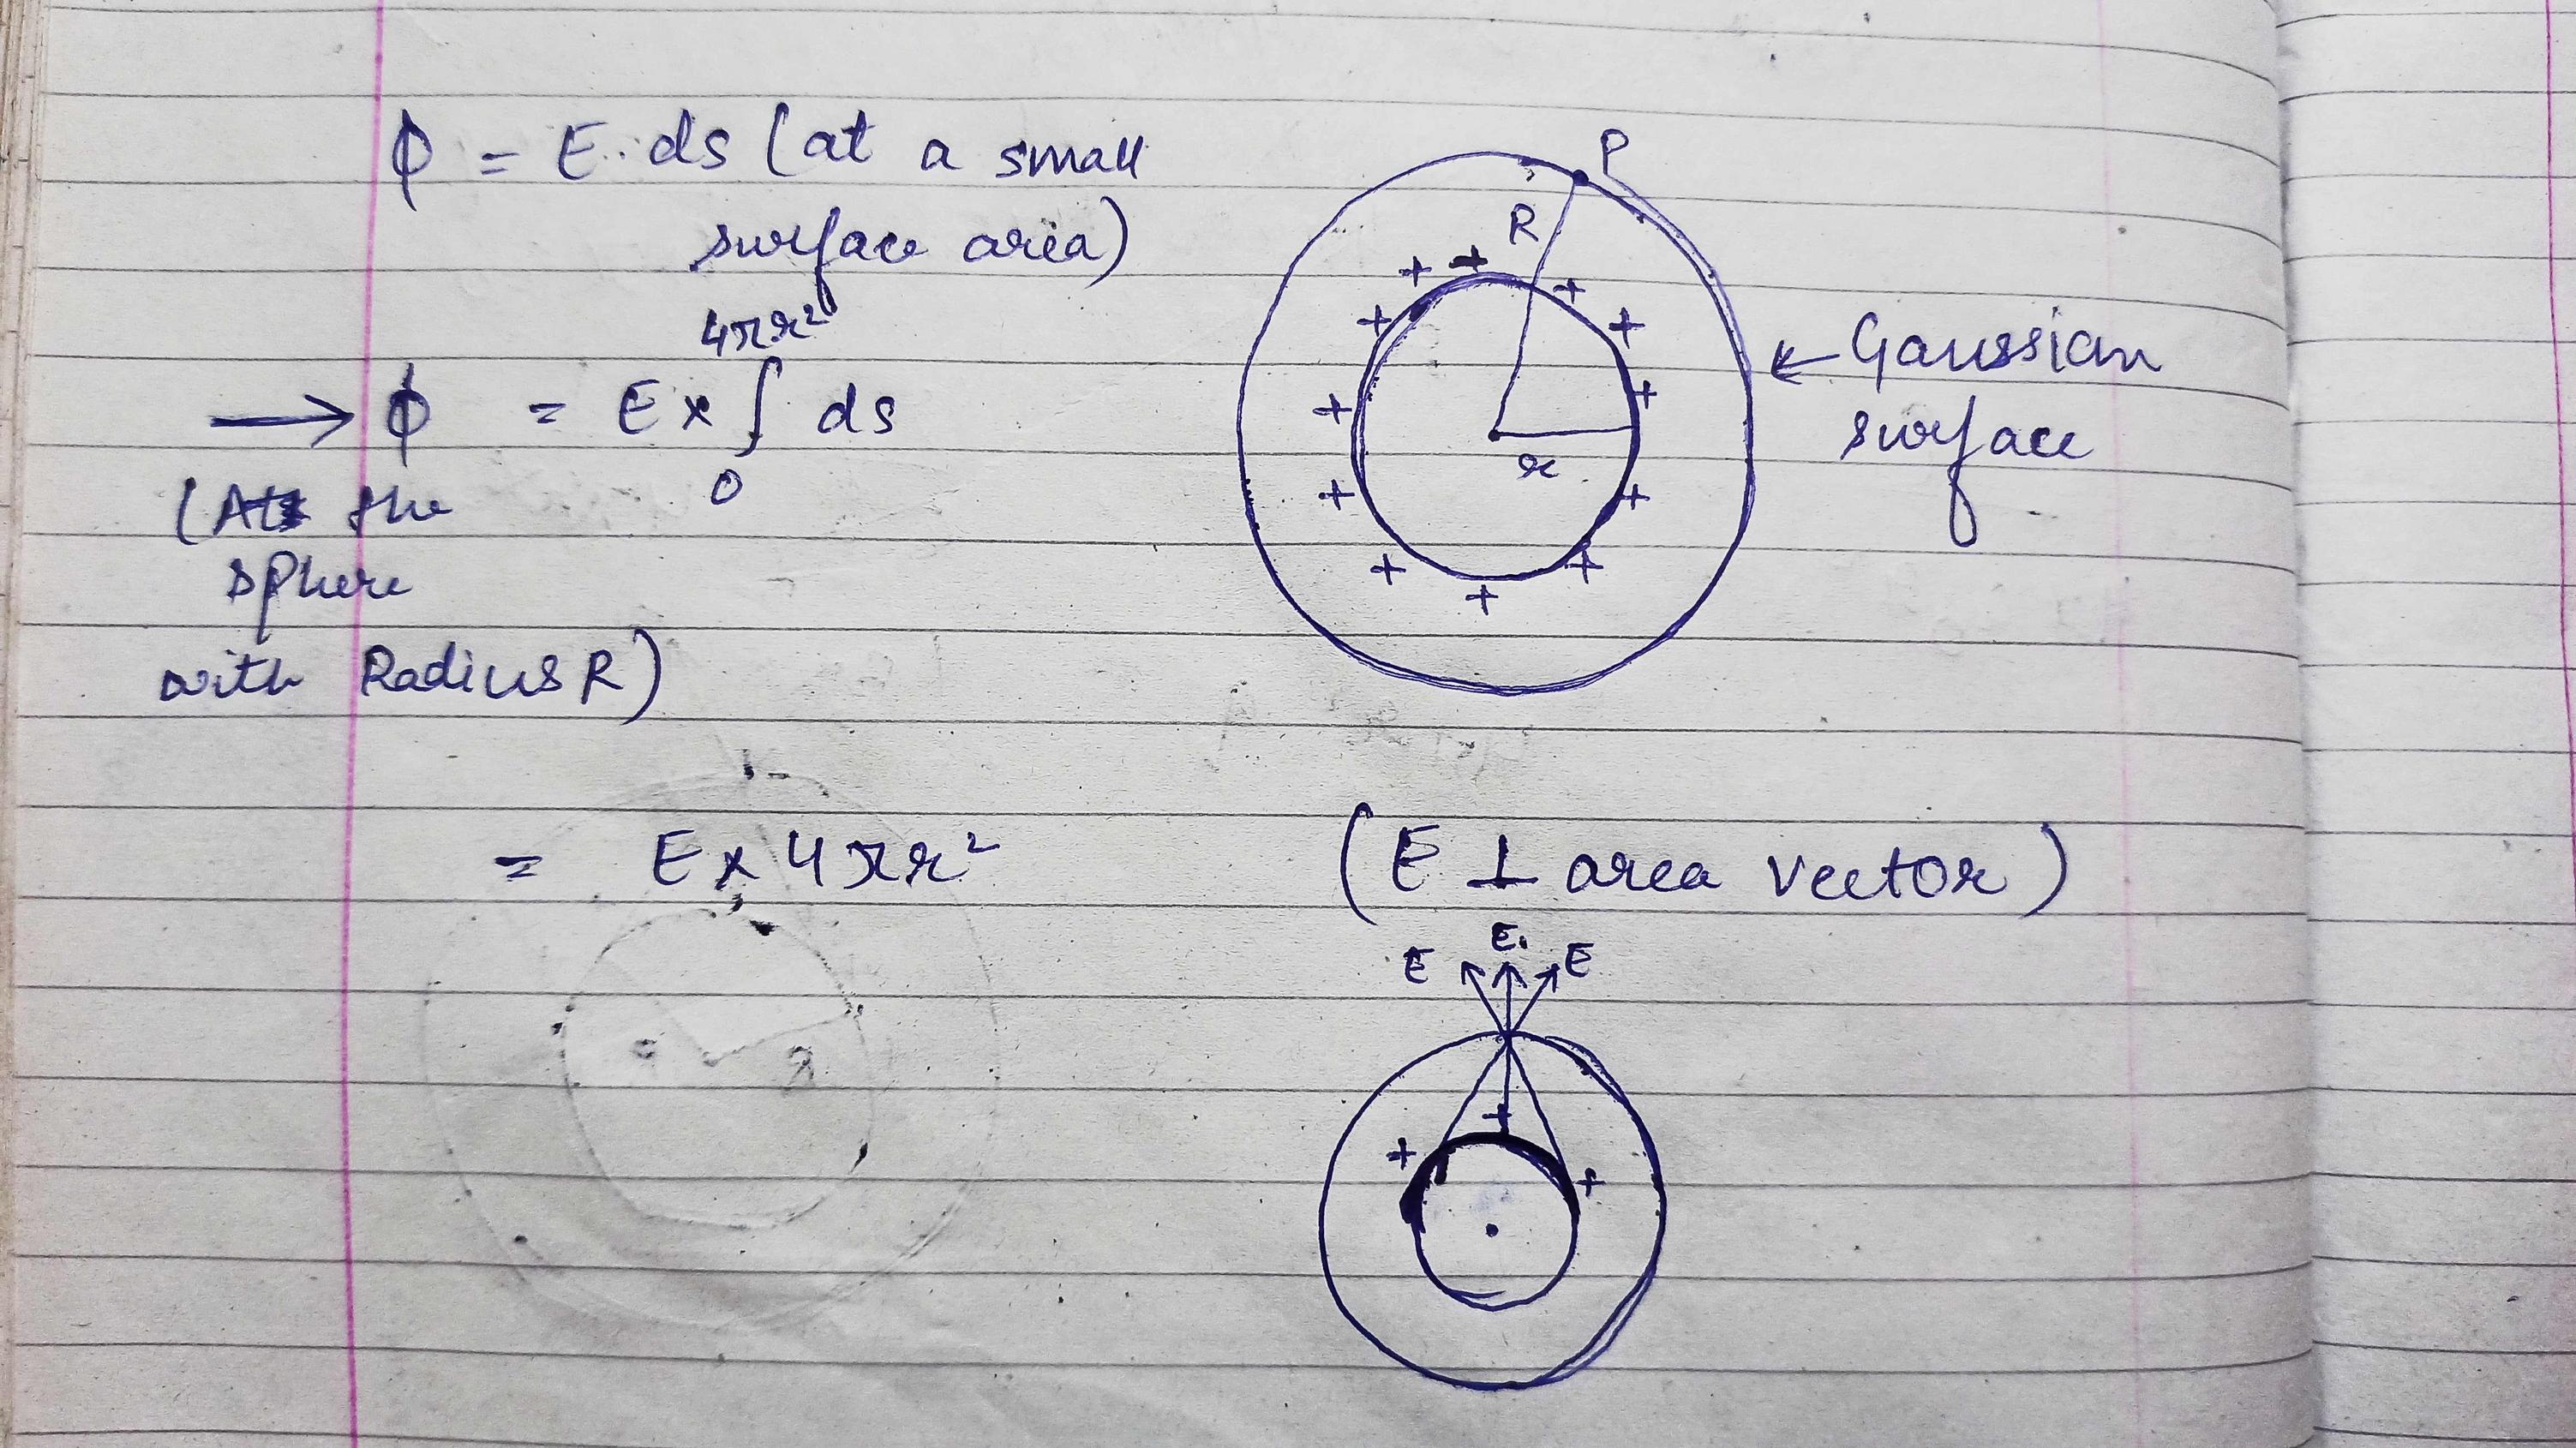 ϕ = E. ds (at a small
surface area)
4πr²
→ ϕ = E × ∫ ds
0
(At the
sphere
with Radius R)
= E × 4πr²
P
R
+ + + + + + + + + + + + +
r
← Gaussian
surface
(E ⊥ area vector)
E E. E
+ + +